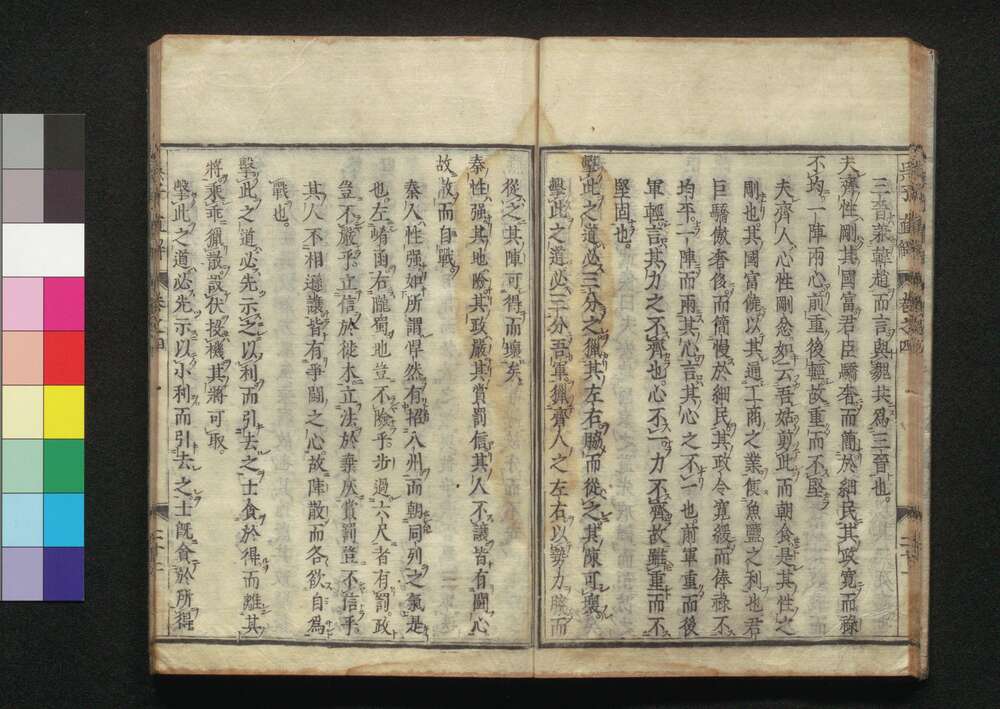 三晉兼韓趙而言與魏共爲三晉也
夫齊性剛其國富君臣驕奢而簡於細民其政寬而祿
不均一陣兩心前重後輕故重而不堅
夫齊人心性剛忿如云吾姑剪此而朝食是其性之
剛也其國富饒以其通工商之業使魚鹽之利也君
臣驕傲奢侈而簡慢於細民其政令寬緩而俸祿不
均平一陣而兩其心言其心之不一也前軍重而後
軍輕言其力之不齊也心不一力不齊故雖重而不
堅固也
擊此之道必三分之獵其左右脇而從之其陳可壞
擊此之道必三分吾軍獵齊人之左右以勢力脇而
從之其陳可得而壞矣
秦性強其地險其政嚴其賞罰信其人不讓皆有鬪心
故散而自戰
秦人性强如所謂悍然有招八州而朝同列之氣是
也左崤函右隴蜀地豈不險乎步過六尺者有罰政
豈不嚴乎立信於徙木立法於棄灰賞罰豈不信乎
其人不相遜讓皆有爭鬪之心故陣散而各欲自爲
戰也
擊此之道必先示之以利而引去之士貪於得而離其
將乘乖獵散設伏投機其將可取
擊此之道必先示以小利而引去之士既貪於所得